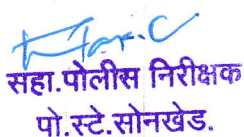 सहा.पोलीस निरीक्षक
पो.स्टे.सोनखेड.